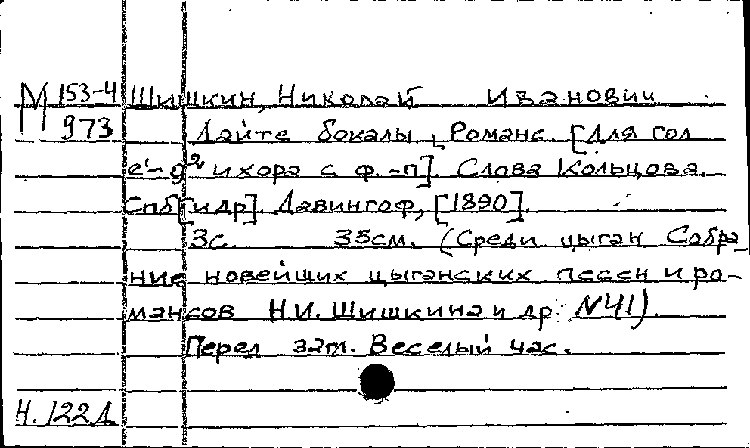 М 153-4 Шишкин, Николай Иванович
973 Дайте бокалы, Романс. [Для гол
е'-g² и хора с ф.-п]. Слова Кольцова.
Спб [и др]. Давингоф, [1890].
3с. 35см. (Среди цыган Собра-
ние новейших цыганских песен и ро-
мансов Н.И. Шишкина и др. N41)
Перед загл. Веселый час.
Н. 122Д